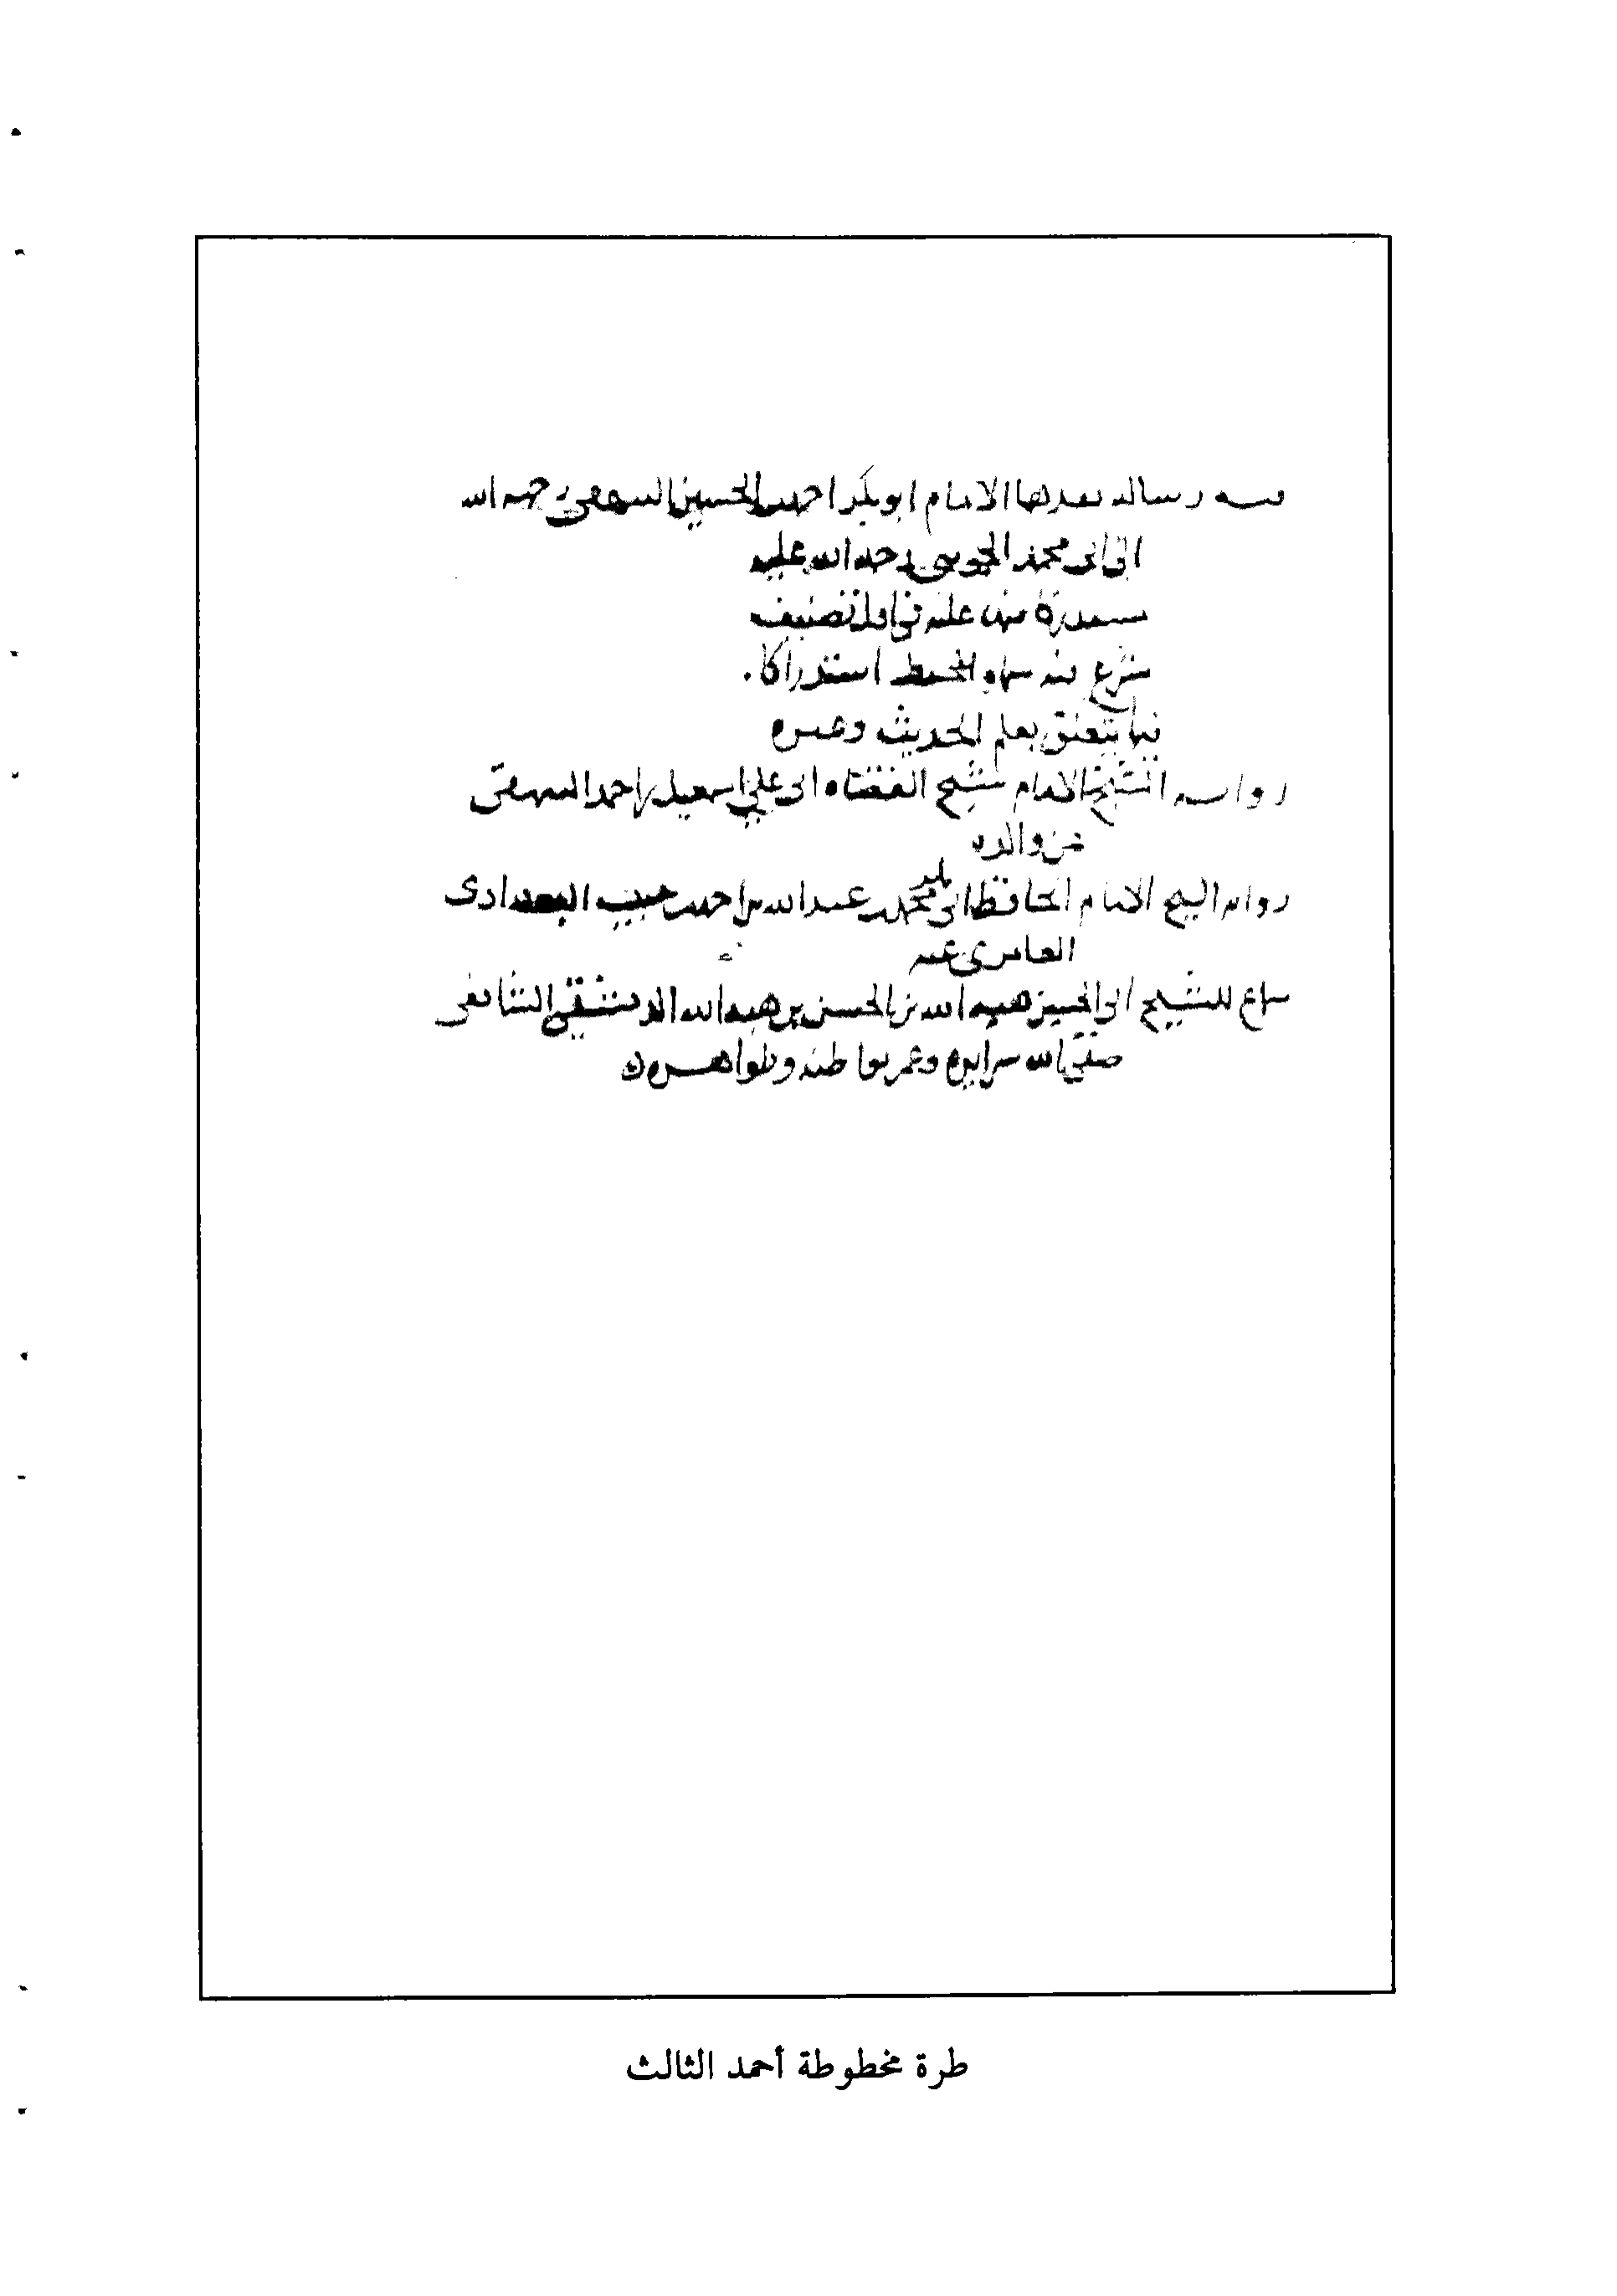 فيه رسالة بعث بها الامام ابو بكر احمد بن الحسين البيهقي رحمه الله
الى ابي محمد الجويني رحمة الله عليه
عليه في اول تصنيف
شرع فيه سماه المحيط استدراكا
فيما يتعلق بعلم الحديث وغيره
رواية الشيخ الامام شيخ القضاة ابي علي اسمعيل بن احمد البيهقي
عن والده
رواية الشيخ الامام الحافظ ابي محمد عبد الله بن احمد بن حبيب البغدادي
العامري عنه
سماع للشيخ ابي الحسين هبة الله بن الحسن بن هبة الله الدمشقي الشافعي
الله سرايره وعمر بواطنه وظواهره
طرة مخطوطة أحمد الثالث